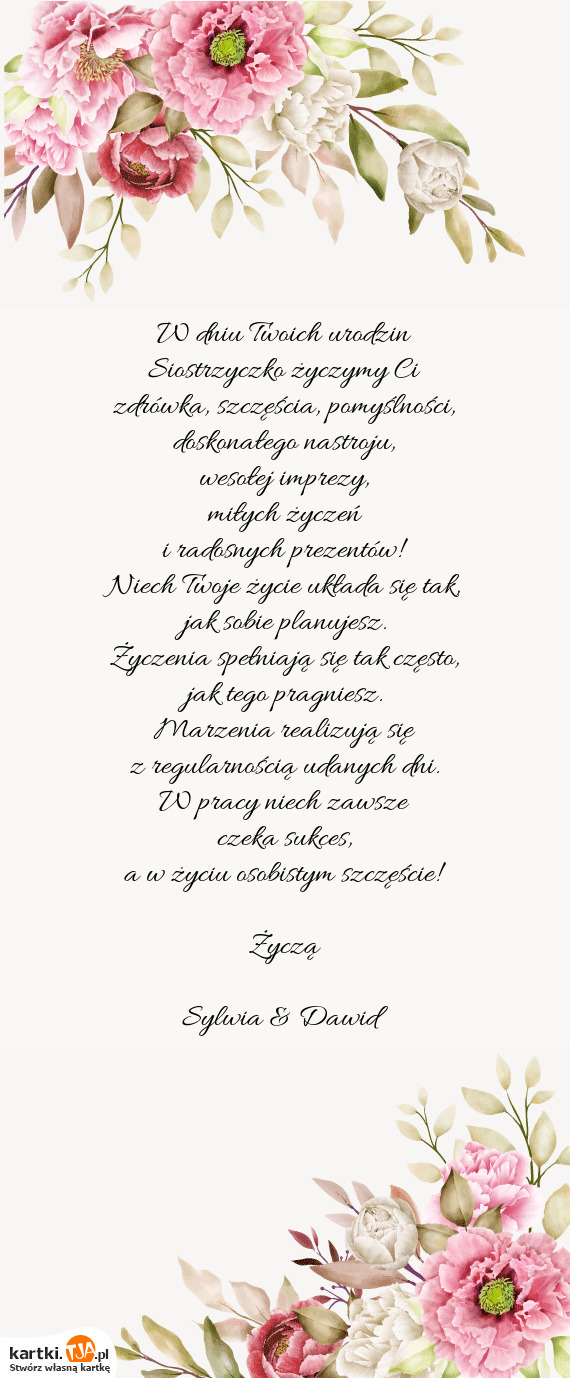 W dniu Twoich urodzin
Siostrzyczko życzymy Ci
zdrówka, szczęścia, pomyślności,
doskonałego nastroju,
wesołej imprezy,
miłych życzeń
i radosnych prezentów!
Niech Twoje życie układa się tak,
jak sobie planujesz.
Życzenia spełniają się tak często,
jak tego pragniesz.
Marzenia realizują się
z regularnością udanych dni.
W pracy niech zawsze
czeka sukces,
a w życiu osobistym szczęście!
Życzą
Sylwia & Dawid
kartki.TJA.pl
Stwórz własną kartkę